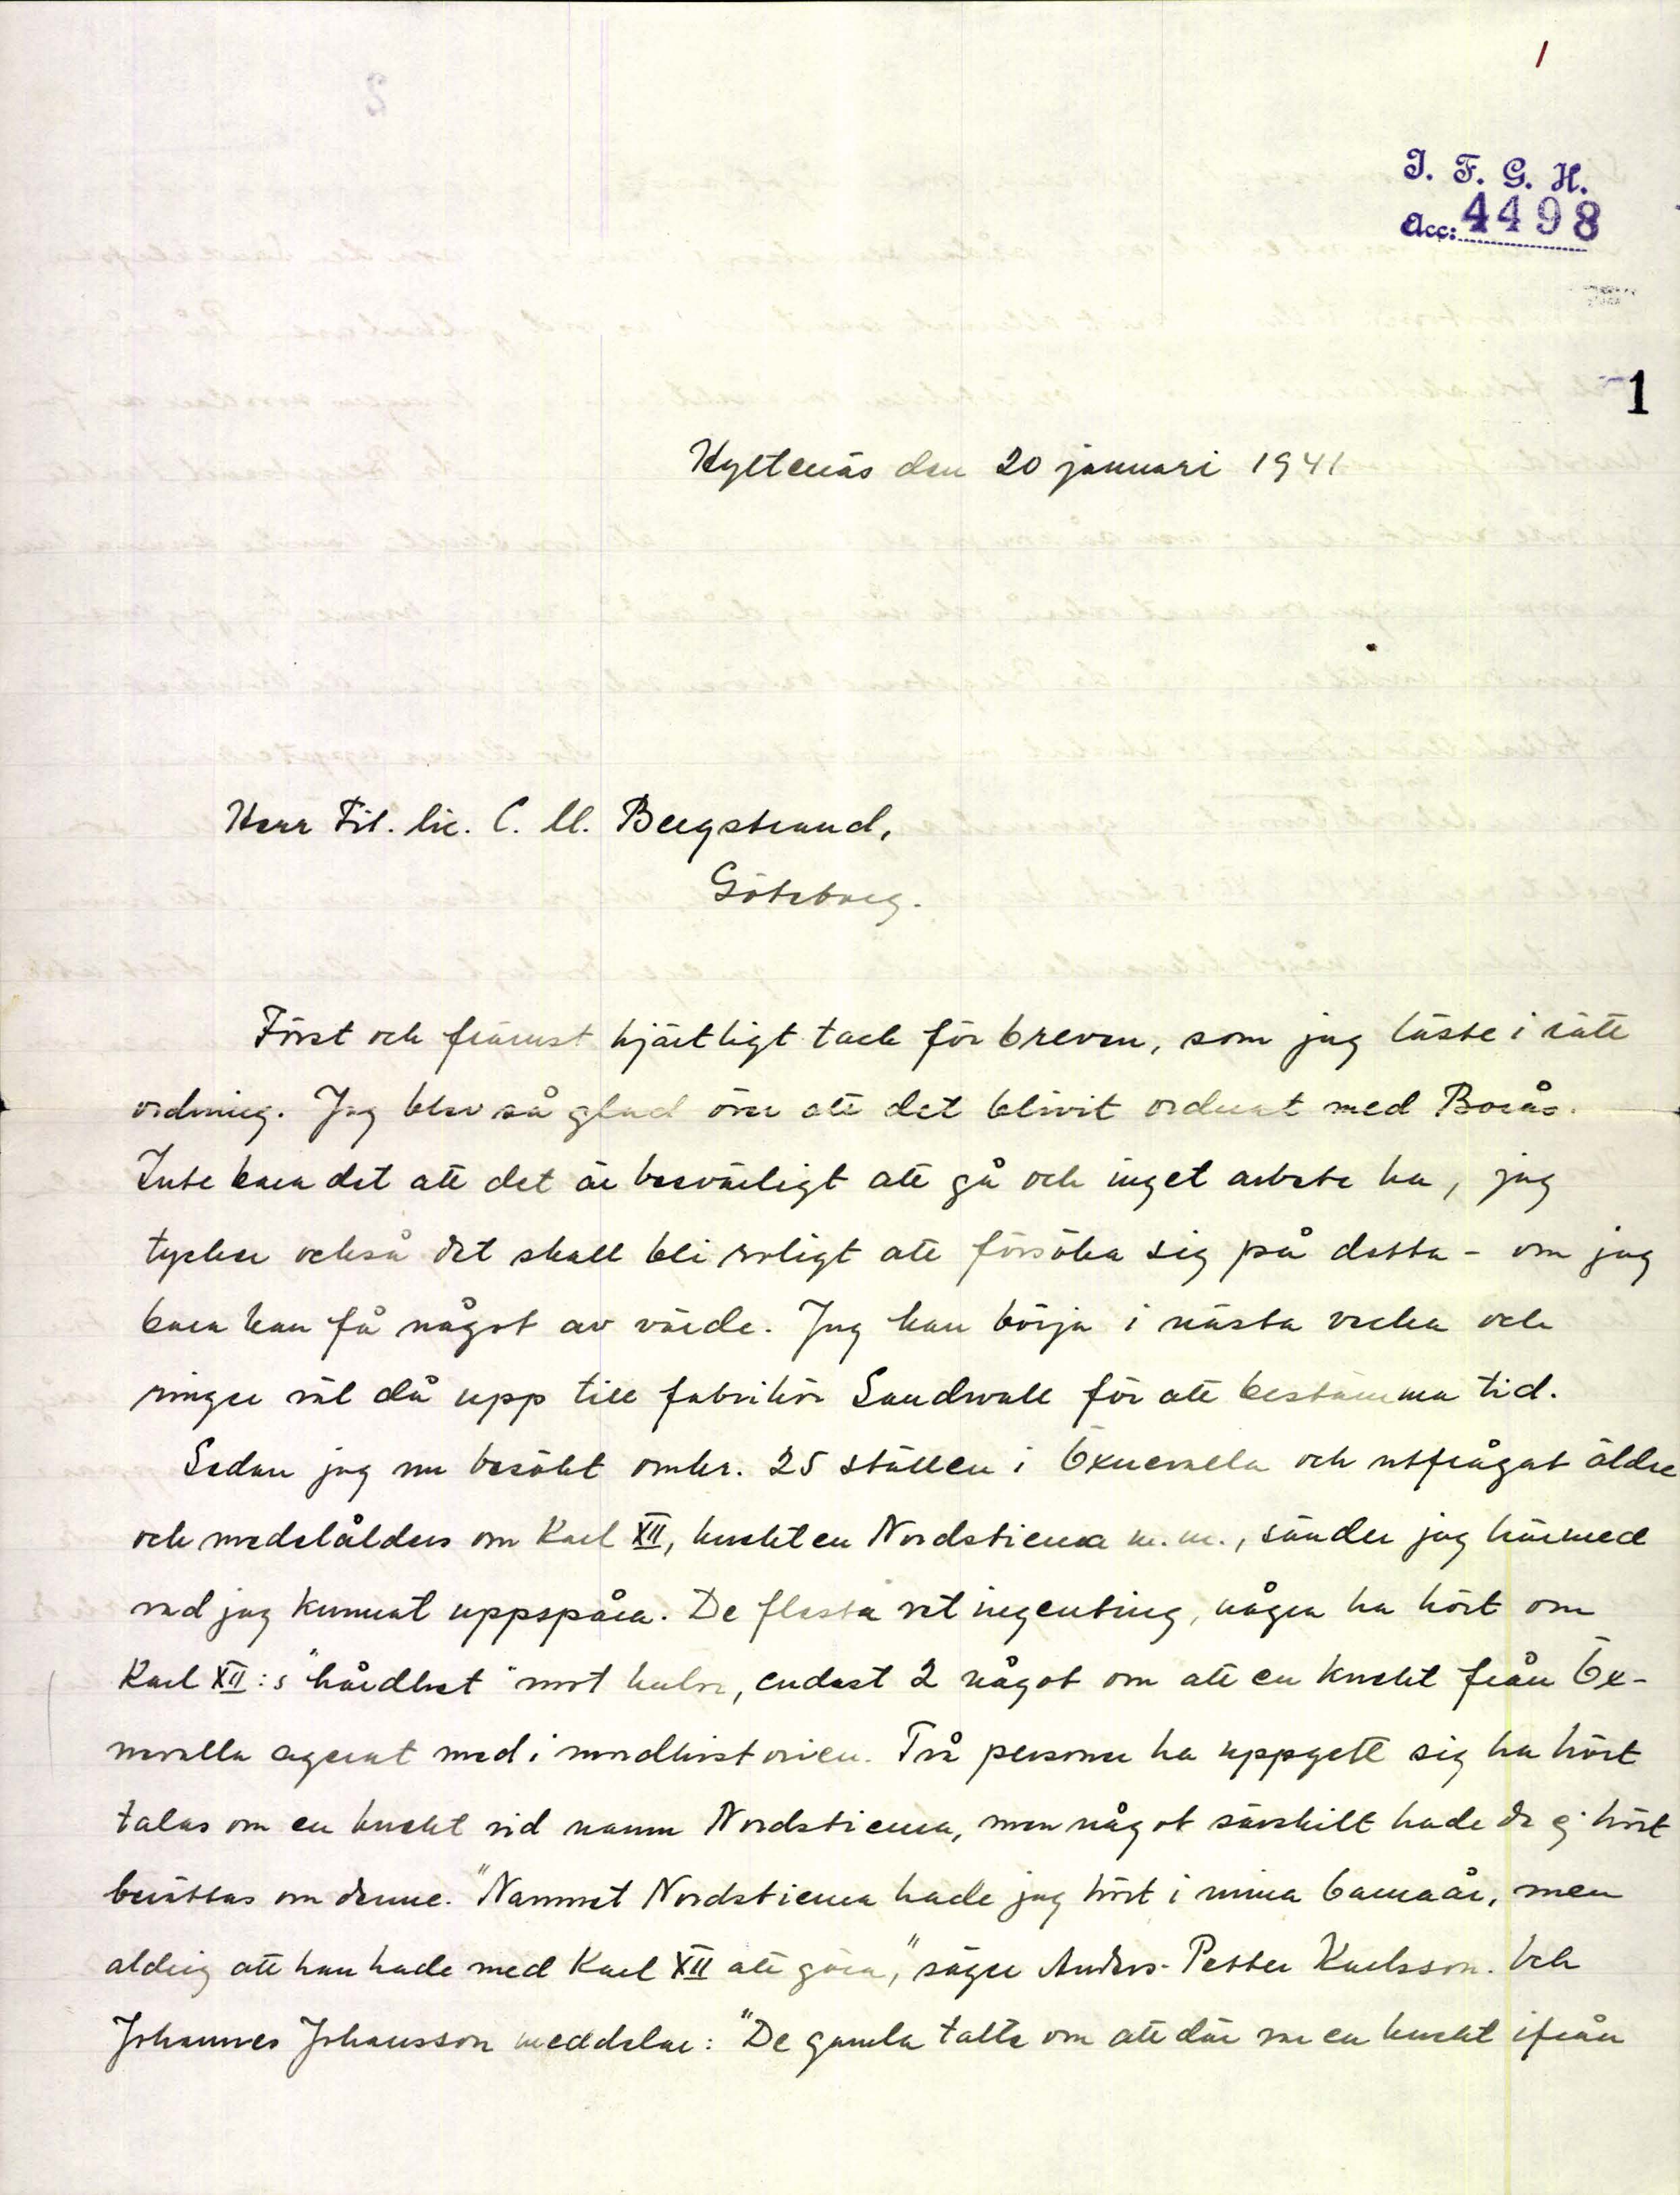 1
I. F. G. H.
Acc: 4498
1
Hyltenäs den 20 januari 1941
Herr Fil. lic. C. M. Bergstrand,
Göteborg.
Först och främst hjärtligt tack för breven, som jag läste i rätt
ordning. Jag blev så glad över att det blivit ordnat med Borås.
Inte bara det att det är besvärligt att gå och inget arbete ha, jag
tycker också det skall bli roligt att försöka sig på detta - om jag
bara kan få något av värde. Jag kan börja i nästa vecka och
ringer väl då upp till fabrikör Sandwall för att bestämma tid.
Sedan jag nu besökt omkr. 25 ställen i Öxnevalla och utfrågat äldre
och medelålders om Karl XII, knekten Nordstierna m.m., sänder jag härmed
vad jag kunnat uppspåra. De flesta vet ingenting, några ha hört om
Karl XII:s "hårdhet" mot kulor, endast 2 något om att en knekt från Öx-
nevalla agerat med i mordhistorien. Två personer ha uppgett sig ha hört
talas om en knekt vid namn Nordstierna, men något särskilt hade de ej hört
berättas om denne. "Namnet Nordstierna hade jag hört i mina barnaår, men
aldrig att han hade med Karl XII att göra," säger Anders-Petter Karlsson. Och
Johannes Johansson meddelar: "De gamla talte om att där var en knekt ifrån